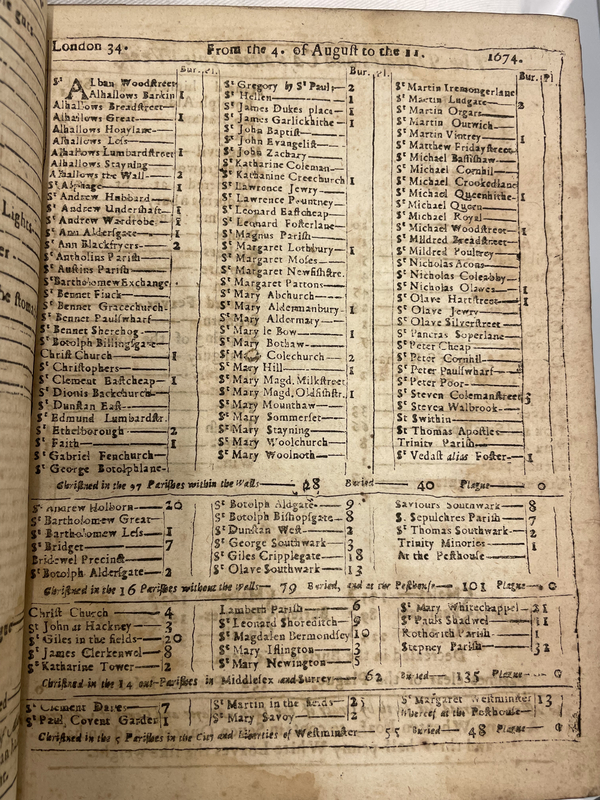 London 34. From the 4. of Auguſt to the 11. 1674.
Bur. Pl.
St Alban Woodſtreet
Alhallows Barkin 1
Alhallows Breadſtreet
Alhallows Great 1
Alhallows Honylane
Alhallows Leſs
Alhallows Lumbardſtreet 1
Alhallows Stayning
Alhallows the Wall 2
St Alphage 1
St Andrew Hubbard
St Andrew Underſhaft 1
St Andrew Wardrobe 1
St Ann Alderſgate 1
St Ann Blackfryers 2
St Antholins Pariſh
St Auſtins Pariſh
St Bartholomew Exchange
St Bennet Finck
St Bennet Gracechurch
St Bennet Paulſwharf
St Bennet Sherehog
St Botolph Billingſgate
Chriſt Church 1
St Chriſtophers
St Clement Eaſtcheap 1
St Dionis Backchurch
St Dunſtan Eaſt
St Edmund Lumbardſtr.
St Ethelborough 2
St Faith 1
St Gabriel Fenchurch
St George Botolphlane
Bur. Pl.
St Gregory by St Pauls 2
St Hellen 1
St James Dukes place 1
St James Garlickhithe 1
St John Baptiſt
St John Evangeliſt
St John Zachary
St Katharine Coleman
St Katharine Creechurch 1
St Lawrence Jewry
St Lawrence Pountney
St Leonard Eaſtcheap
St Leonard Foſterlane
St Magnus Pariſh
St Margaret Lothbury 1
St Margaret Moſes
St Margaret Newfiſhſtre.
St Margaret Pattons
St Mary Abchurch
St Mary Aldermanbury 1
St Mary Aldermary
St Mary le Bow 1
St Mary Bothaw
St Mary Colechurch 2
St Mary Hill 1
St Mary Magd. Milkſtreet
St Mary Magd. Oldfiſhſtr. 1
St Mary Mounthaw
St Mary Sommerſet
St Mary Stayning
St Mary Woolchurch
St Mary Woolnoth
Bur. Pl.
St Martin Iremongerlane
St Martin Ludgate 2
St Martin Orgars
St Martin Outwich
St Martin Vintrey 1
St Matthew Fridayſtreet
St Michael Baſſiſhaw
St Michael Cornhil
St Michael Crookedlane
St Michael Queenhithe 1
St Michael Quern
St Michael Royal
St Michael Woodſtreet 1
St Mildred Breadſtreet
St Mildred Poultrey
St Nicholas Acons
St Nicholas Coleabby
St Nicholas Olaves 1
St Olave Hartſtreet 1
St Olave Jewry
St Olave Silverſtreet
St Pancras Soperlane
St Peter Cheap
St Peter Cornhil
St Peter Paulſwharf
St Peter Poor
St Steven Colemanſtreet 3
St Steven Walbrook
St Swithin
St Thomas Apoſtles
Trinity Pariſh
St Vedaſt alias Foſter 1
Chriſtned in the 97 Pariſhes within the Walls 28 Buried 40 Plague 0
St Andrew Holborn 20
St Bartholomew Great
St Bartholomew Leſs 1
St Bridget 7
Bridewel Precinct
St Botolph Alderſgate 2
St Botolph Aldgate 9
St Botolph Biſhopſgate 8
St Dunſtan Weſt 2
St George Southwark 3
St Giles Cripplegate 18
St Olave Southwark 13
Saviours Southwark 8
S. Sepulchres Pariſh 7
St Thomas Southwark 2
Trinity Minories 1
At the Peſthouſe
Chriſtned in the 16 Pariſhes without the Walls 79 Buried, and at the Peſthouſe 101 Plague 0
Chriſt Church 4
St John at Hackney 3
St Giles in the fields 20
St James Clerkenwel 8
St Katharine Tower 2
Lambeth Pariſh 6
St Leonard Shoreditch 9
St Magdalen Bermondſey 10
St Mary Iſlington 3
St Mary Newington 5
St Mary Whitechappel 21
St Pauls Shadwel 11
Rothorith Pariſh 1
Stepney Pariſh 32
Chriſtned in the 14 out-Pariſhes in Middleſex and Surrey 62 Buried 135 Plague 0
St Clement Danes 7
St Paul, Covent Garden 1
St Martin in the fields 25
St Mary Savoy 2
St Margaret Weſtminſter 13
Whereof at the Peſthouſe
Chriſtned in the 5 Pariſhes in the City and Liberties of Weſtminſter 55 Buried 48 Plague 0